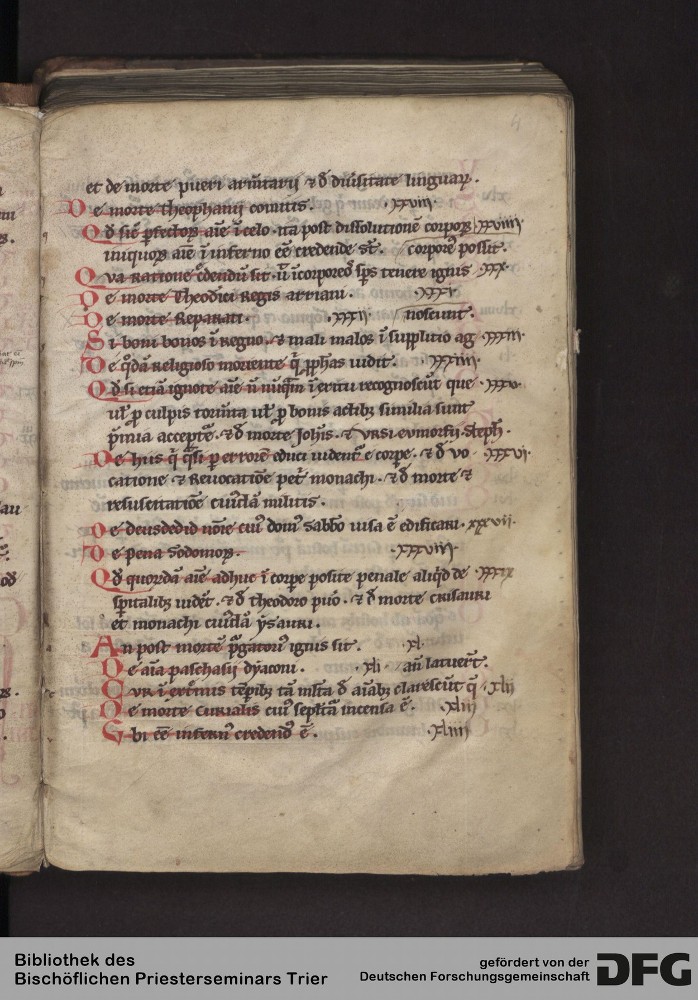 4
et de morte pueri arm̄tarij ⁊ đ diu̾sitate linguaꝝ.
De morte theophanij comitis. .xxviii.
Qđ sic̄ ꝑfectoꝝ aīe ī celo. ita post dissolutionē corpoꝝ xxviiii.
iniquoꝝ aīe ī inferno ēe credende st̄. corporeꝰ possit.
Qua ratione c̾dendū sit. ut̄ īcorporeꝰ sp̄s tenere ignis .xxx.
De morte Theod̾ici regis arriani. .xxxi.
De morte Reparati. .xxxii. noscunt.
Si boni bonos ī regno. ⁊ mali malos ī supplitio ag .xxxiii.
De q̾dā Religioso moriente q̄ ꝓphas uidit. .xxxiiii.
Qđ si etiā ignote aīe ū nūq̄m ī exitu recognoscūt que .xxxv.
ul̾ ꝓ culpis torm̄ta ul̾ ꝓ bonis actibꝫ similia sunt
p̾mia accepte̾. ⁊ đ morte Joh̄is. ⁊ ursi eumorfij steph̄.
De hiis q̄ q̾si p errorē educi uident̾ e corpe. ⁊ đ uo .xxxvi.
catione ⁊ Reuocatiōe pet̾ monachi. ⁊ đ morte ⁊
resuscitatiōe cuiꝰdā militis.
De deusdedid noīe cuiꝰ domꝰ sabbō uisa ē edificari. xxxvii.
De pena Sodomoꝝ. .xxxviii.
Qđ quordā aīe adhuc ī corpe posite penale aliq̾d de .xxxix
sp̄italibꝫ uidēt. ⁊ đ theodoro puo. ⁊ đ morte crisauri
et monachi cuiꝰdā ysauri.
An post mortē pꝰgatoriꝰ ignis sit. .xl.
De aīa paschasij dyaconi. .xli. an̄ latuer̄t.
Cur ī extmis tēpibꝫ tā m̄lta đ aīabꝫ clarescūt q̄ .xlii
De morte curialis cuiꝰ sepltā incensa ē. .xliii
Ubi ēe infernꝰ credendꝰ ē. .xliiii
Bibliothek des
Bischöflichen Priesterseminars Trier
gefördert von der
Deutschen Forschungsgemeinschaft
DFG